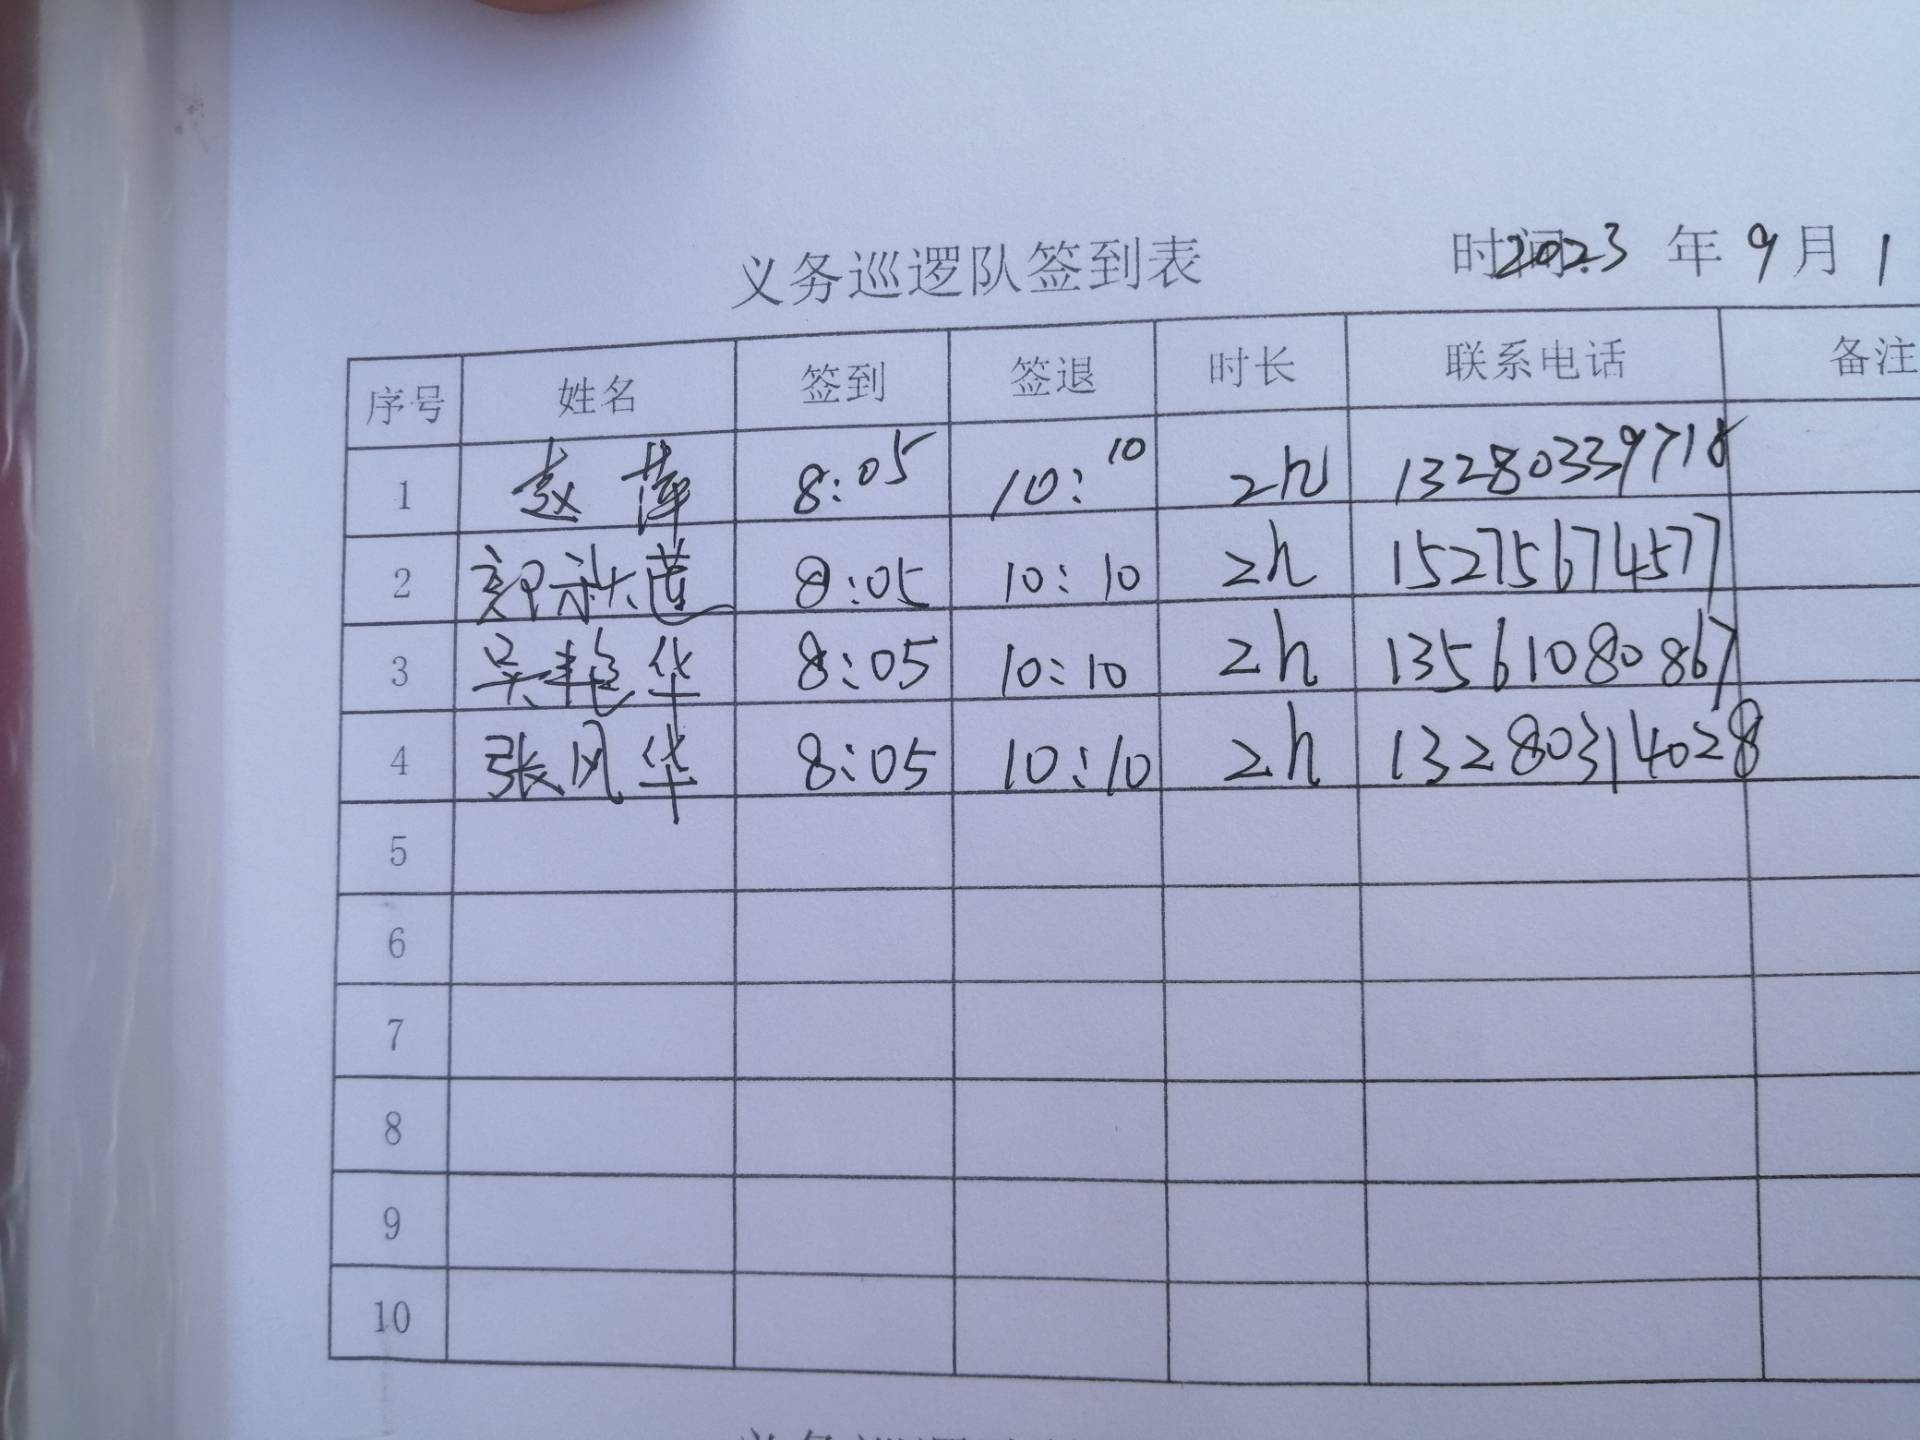 义务巡逻队签到表 时间:2023 年 9 月 1
序号 姓名 签到 签退 时长 联系电话 备注
1 赵萍 8:05 10:10 2h 13280339718
2 秋莲 8:05 10:10 2h 15275674577
3 吴艳华 8:05 10:10 2h 13561080867
4 张风华 8:05 10:10 2h 13280314028
5
6
7
8
9
10